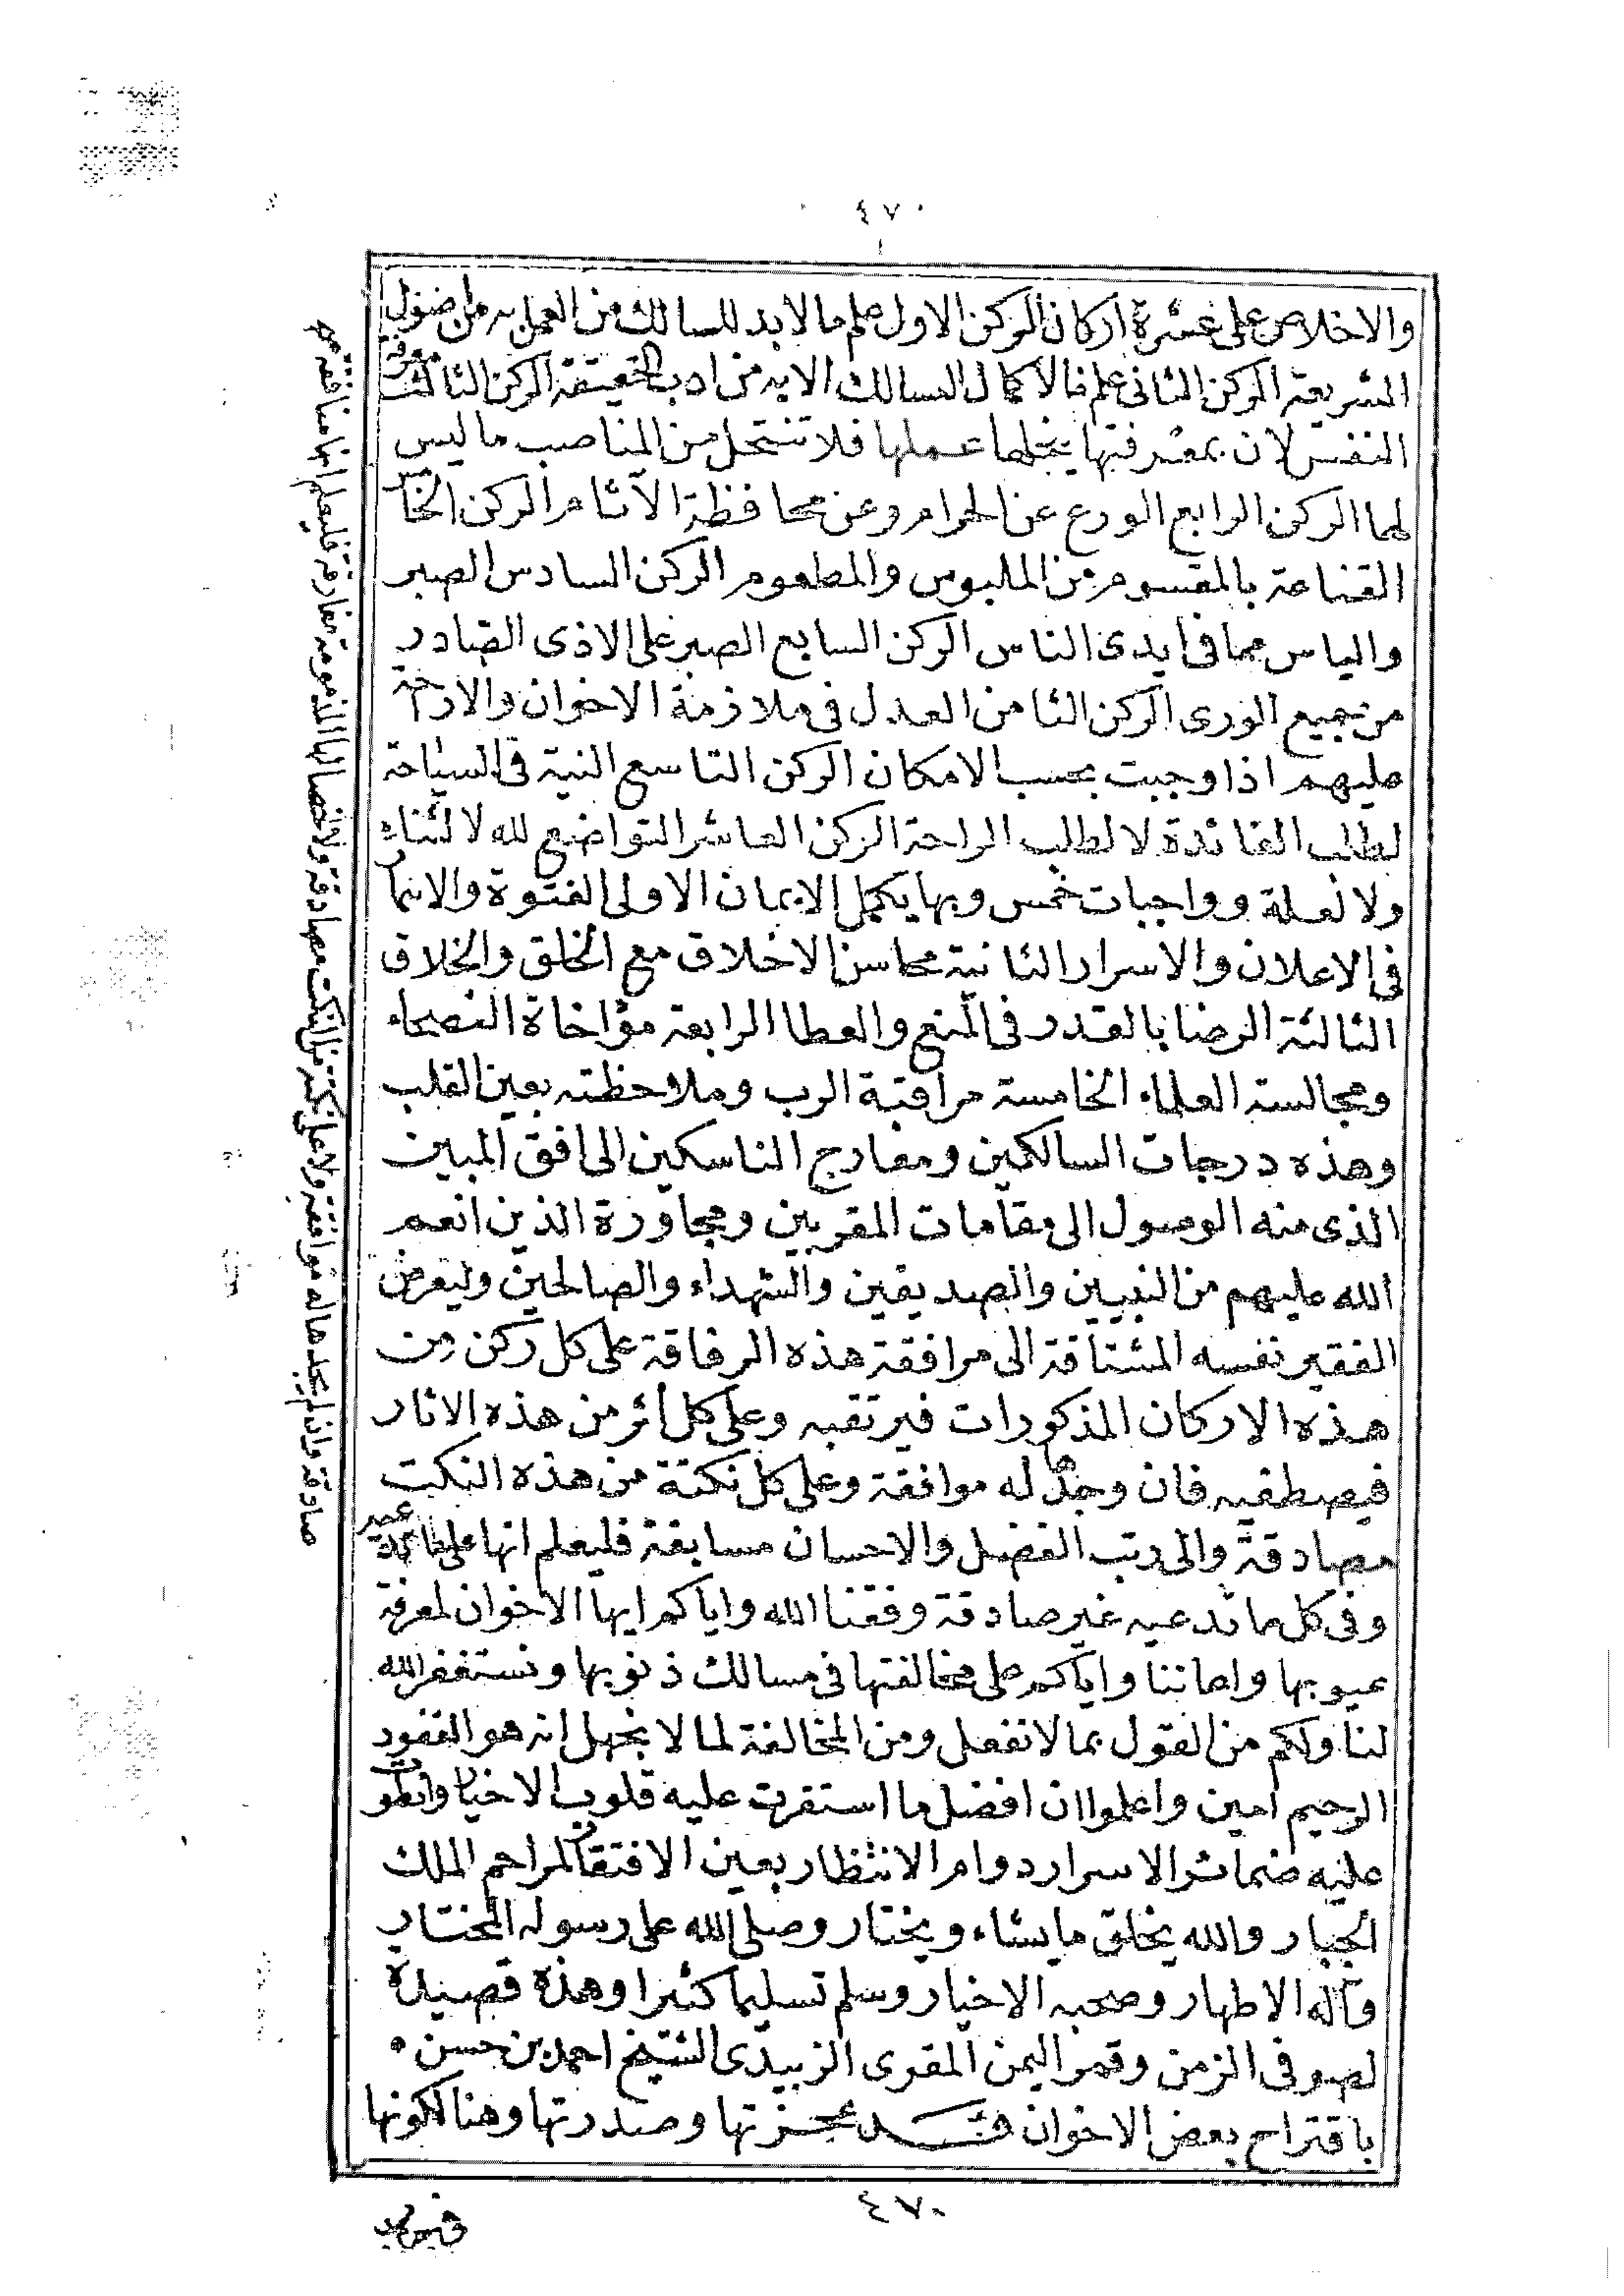 ٤٧٠
والاخلاص على عشرة اركان الركن الاول علم ما لا بد للسالك من العمل به من
الشريعة الركن الثانى علم ما لا كمال للسالك الا به من ادب الحقيقة الركن الثالث معرفة
النفس لان بمعرفتها يخلها عملها فلا تنتحل من المناصب ما ليس
لها الركن الرابع الورع عن الحرام وعن محافظة الآثام الركن الخامس
القناعة بالمقسوم من الملبوس والمطعوم الركن السادس الصبر
والياس مما فى ايدى الناس الركن السابع الصبر على الاذى الصادر
من جميع الورى الركن الثامن العدل فى ملازمة الاخوان والازاحة
عليهم اذا وجبت بحسب الامكان الركن التاسع النية فى السياحة
لطلب الفائدة لا لطلب الراحة الركن العاشر التواضع لله لا لثناء
ولا لعلة وواجبات خمس وبها يكمل الايمان الاولى الفتوة والانتما
فى الاعلان والاسرار الثانية محاسن الاخلاق مع الخلق والخلاق
الثالثة الرضا بالقدر فى المنع والعطا الرابعة مؤاخاة النصحاء
ومجالسة العلماء الخامسة مراقبة الرب وملاحظته بعين القلب
وهذه درجات السالكين ومعارج الناسكين الى افق المبين
الذى منه الوصول الى مقامات المقربين ومجاورة الذين انعم
الله عليهم من النبيين والصديقين والشهداء والصالحين وليعرض
الفقير نفسه المشتاقة الى مرافقة هذه الرفاقة على كل ركن من
هذه الاركان المذكورات فيرتقبه وعلى كل اثر من هذه الاثار
فيصطفيه فان وجدها له موافقة وعلى كل نكتة من هذه النكت
مصادقة والى رتب الفضل والاحسان مسابقة فليعلم انها على
وفى كل ما تدعيه غير صادقة وفقنا الله واياكم ايها الاخوان لمعرفة
عيوبها واعاننا واياكم على مخالفتها فى مسالك ذنوبها ونستغفر الله
لنا ولكم من القول بما لا نفعل ومن المخالفة لما لا نجهل انه هو الغفور
الرحيم امين واعلموا ان افضل ما استقرت عليه قلوب الاخيار وانطوت
عليه ضمائر الاسرار دوام الانتظار بعين الافتقار لمراحم الملك
الجبار والله يخلق ما يشاء ويختار وصلى الله على رسوله المختار
وآله الاطهار وصحبه الاخيار وسلم تسليما كثيرا وهذه قصيدة
لصوفى الزمن وقمر اليمن المقرى الزبيدى الشيخ احمد بن حسن
باقتراح بعض الاخوان وقد عجزتها وصدرتها وهنا لكونها
صادقة واذا لم يجدها له موافقة ولا على نكتة من النكت مصادقة ولا لخصالها المذمومة مفارقة فليعلم انها منافقة صح
٤٧٠